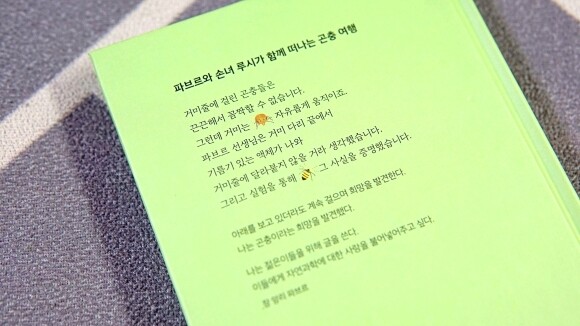 파브르와 손녀 루시가 함께 떠나는 곤충 여행
거미줄에 걸린 곤충들은
끈끈해서 꼼짝할 수 없습니다.
그런데 거미는 자유롭게 움직이죠.
파브르 선생님은 거미 다리 끝에서
기름기 있는 액체가 나와
거미줄에 달라붙지 않을 거라 생각했습니다.
그리고 실험을 통해 그 사실을 증명했습니다.
아래를 보고 있더라도 계속 걸으며 희망을 발견한다.
나는 곤충이라는 희망을 발견했다.
나는 젊은이들을 위해 글을 쓴다.
이들에게 자연과학에 대한 사랑을 불어넣어주고 싶다.
장 앙리 파브르